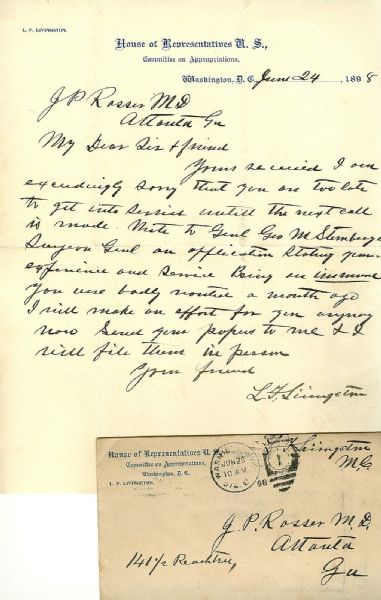 L. F. LIVINGSTON.
House of Representatives U. S.,
Committee on Appropriations,
Washington, D. C., June 24, 1898
J P Rosser M D
Atlanta Ga
My Dear Sir & friend
Yours received I am
exceedingly sorry that you are too late
to get into service untill the next call
is made. Write to Genl Geo M Sternberg
Surgeon Genl an application stating your
experience and service Being an immune
You were badly wanted a month ago
I will make an effort for you anyway
now Send your papers to me & I
will file them in person
Your friend
L F Livingston
House of Representatives U
Committee on Appropriations,
Washington, D. C.
L. F. LIVINGSTON.
JUN 25
10 AM
98
1
Livingston
M.C.
J. P. Rosser M. D.
Atlanta
Ga
141 1/2 Peachtree,